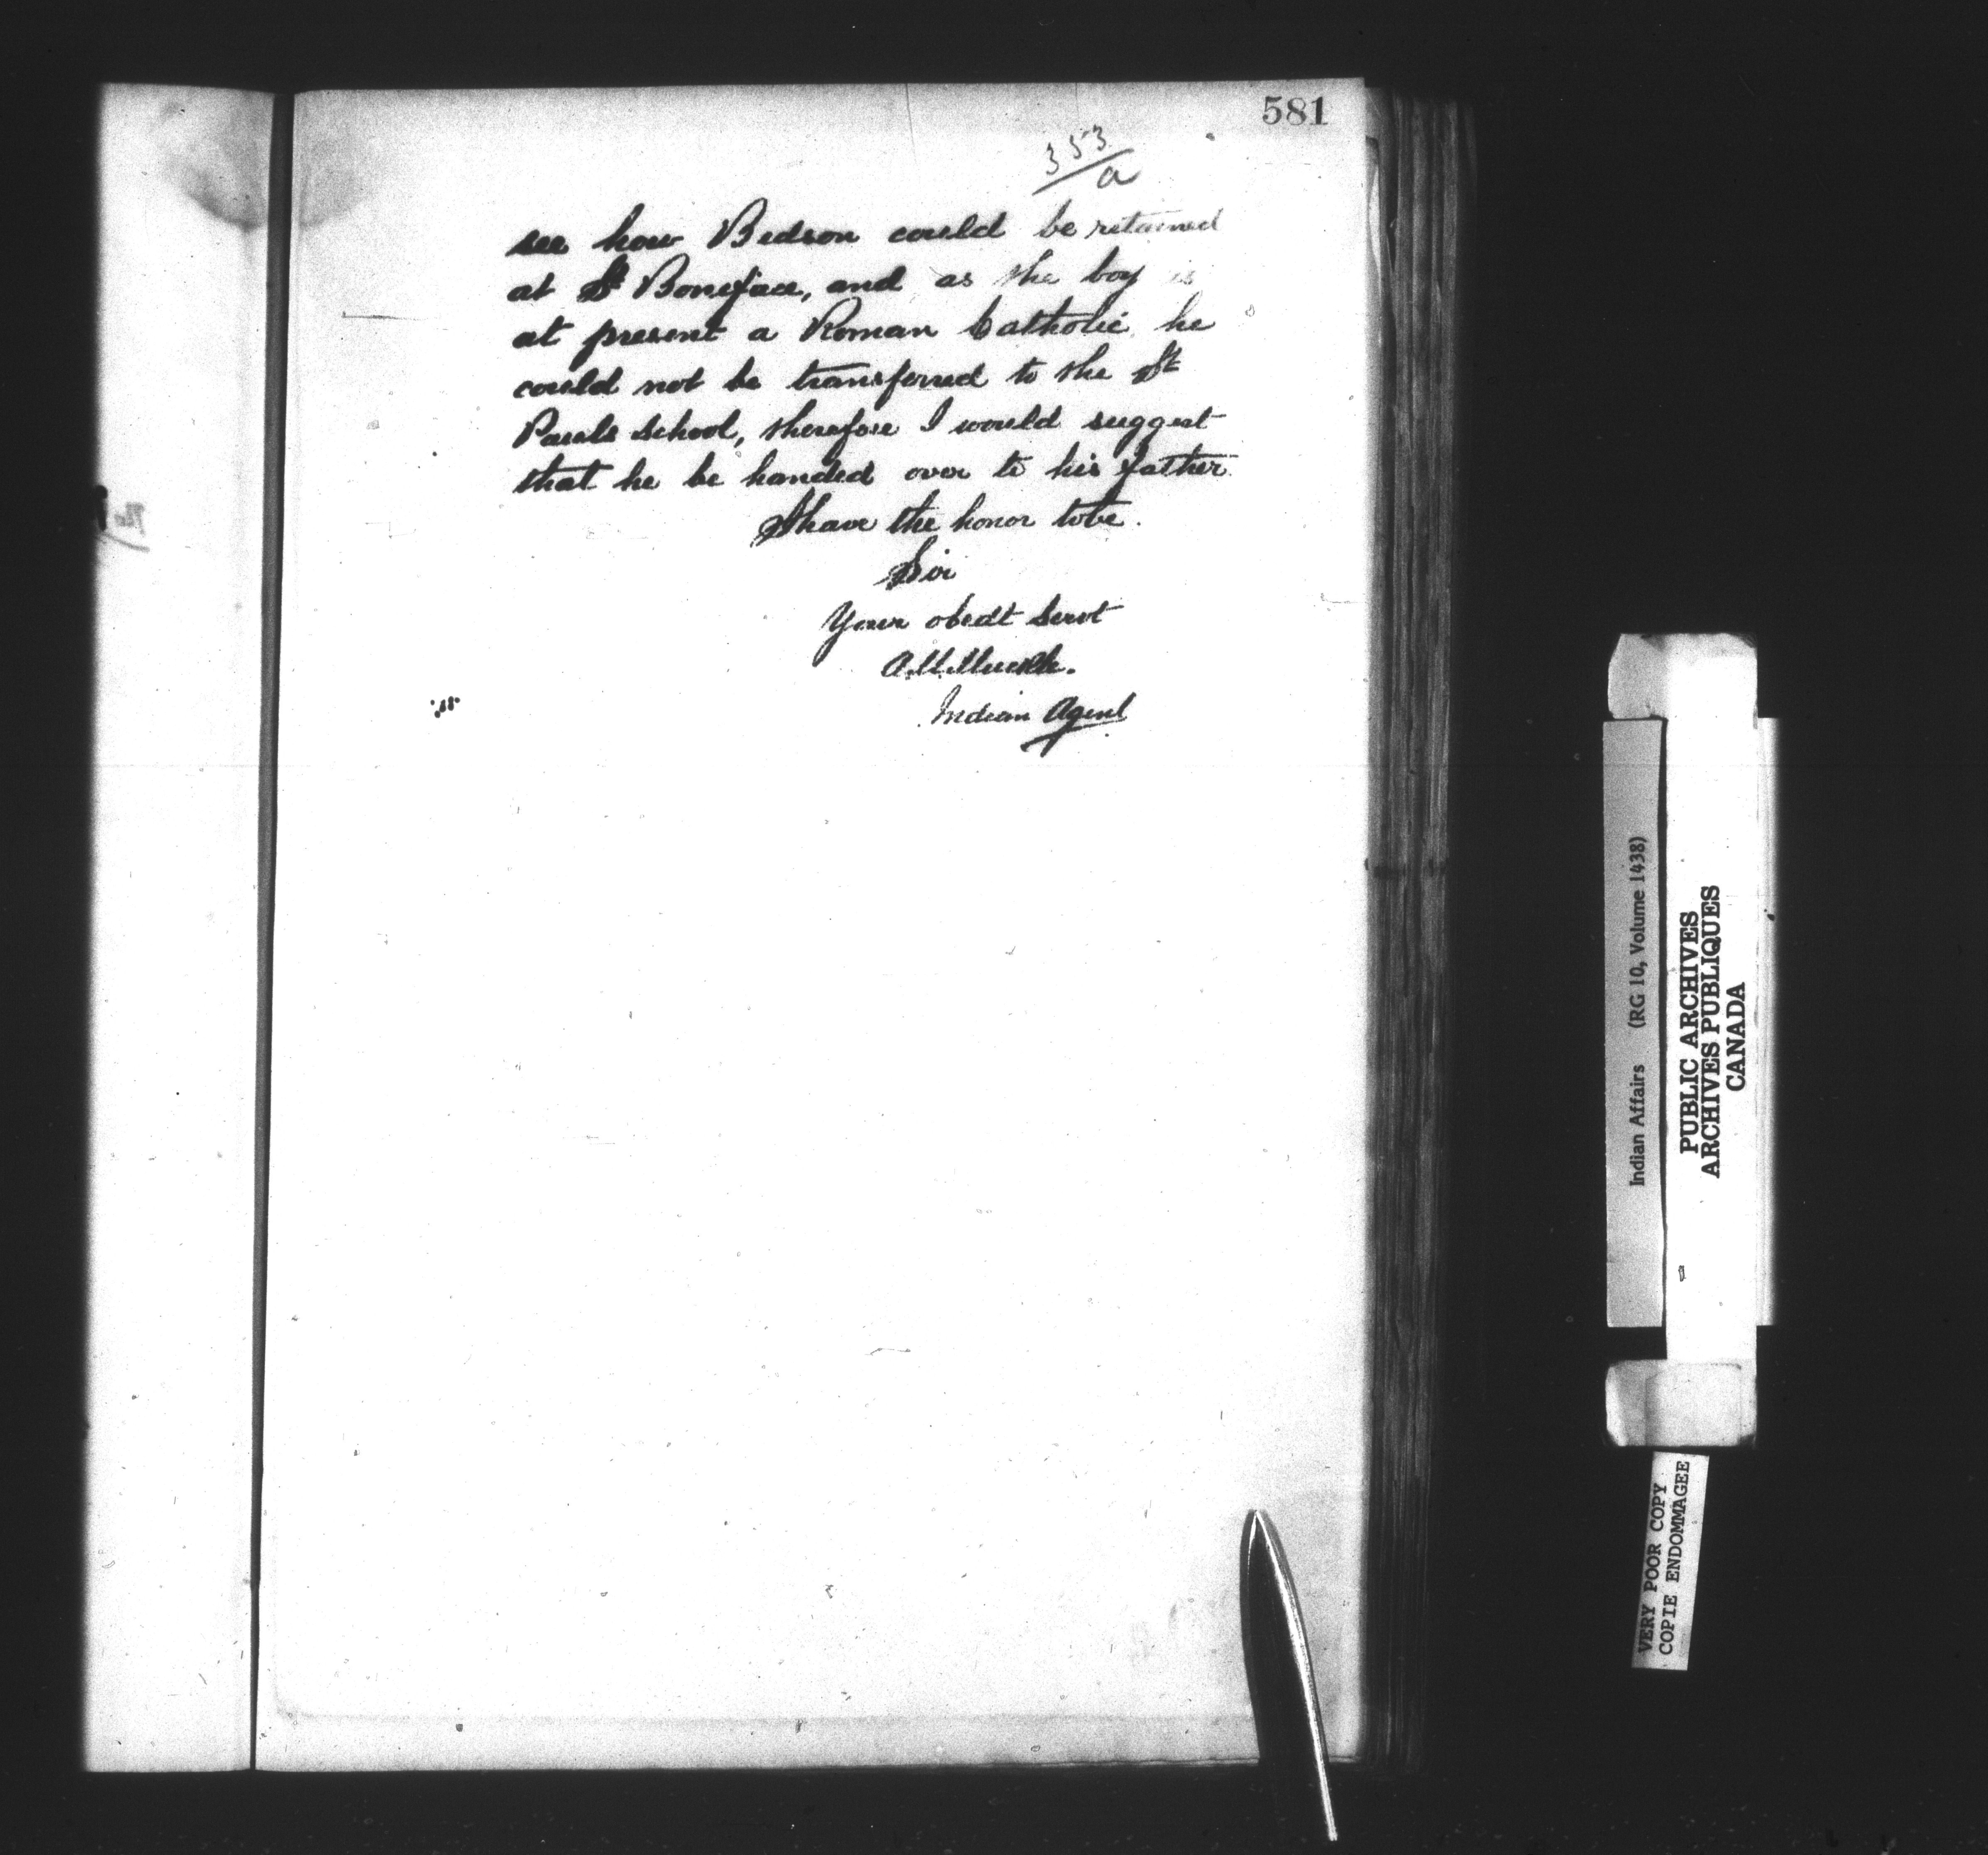 581
353/a
see how Bedson could be retained
at St Boniface, and as the boy is
at present a Roman Catholic he
could not be transferred to the St
Pauls School, therefore I would suggest
that he be handed over to his father.
I have the honor to be.
Sir
Your obedt Servt
A.M. Muckle.
Indian Agent
Indian Affairs (RG 10, Volume 1438)
PUBLIC ARCHIVES
ARCHIVES PUBLIQUES
CANADA
VERY POOR COPY
COPIE ENDOMMAGEE